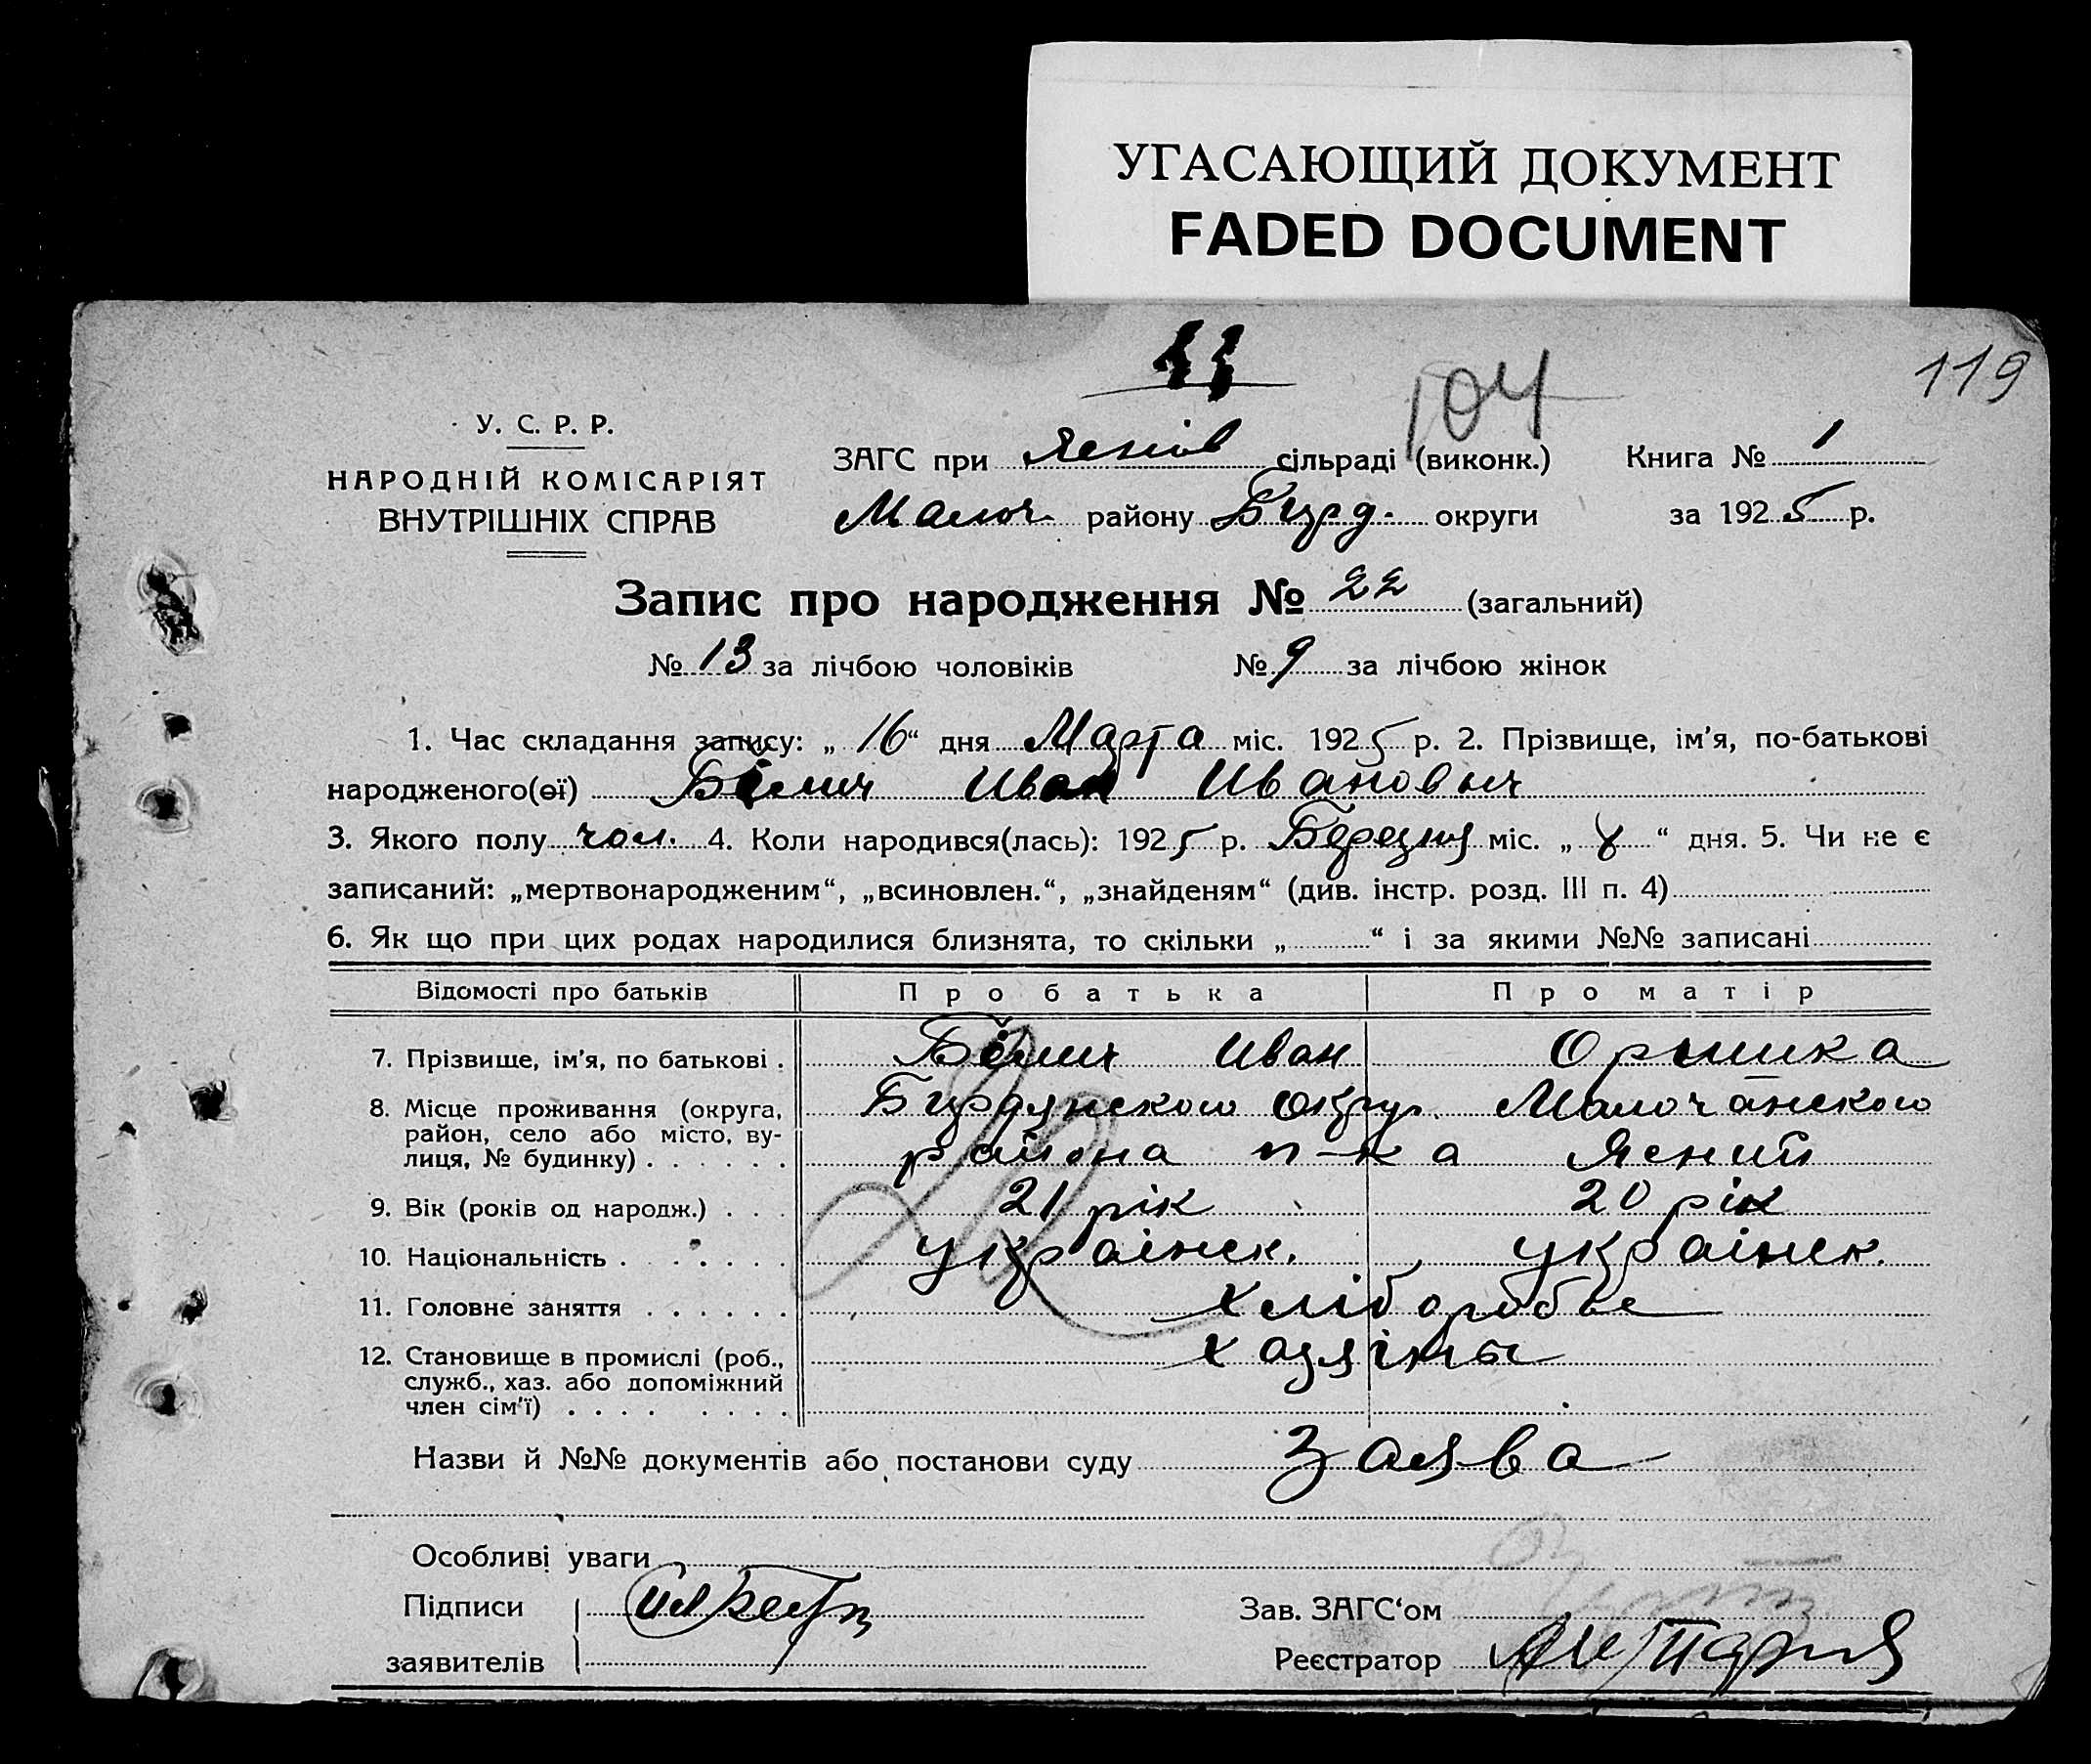 УГАСАЮЩИЙ ДОКУМЕНТ
FADED DOCUMENT
119
104
У. С. Р. Р.
НАРОДНІЙ КОМІСАРІЯТ
ВНУТРІШНІХ СПРАВ
ЗАГС при Яснів сільраді (виконк.) Книга № 1
Молоч. району Бирд. округи за 1925 р.
Запис про народження № 22 (загальний)
№ 13 за лічбою чоловіків № 9 за лічбою жінок
1. Час складання запису: „ 16 “ дня Марта міс. 1925 р. 2. Прізвище, ім'я, по-батькові
народженого(ої) Білич Иван Иванович
3. Якого полу чол. 4. Коли народився(лась): 1925 р. Березня міс. „ 8 “ дня. 5. Чи не є
записаний: „мертвонародженим“, „всиновлен.“, „знайденям“ (див. інстр. розд. III п. 4)
6. Як що при цих родах народилися близнята, то скільки „ “ і за якими №№ записані
Відомості про батьків Про батька Про матір
7. Прізвище, ім'я, по батькові . Білич Иван Орышка
8. Місце проживання (округа, Бирдянского округ. Молочанского
район, село або місто, ву-
лиця, № будинку) . . . . . . района п-ка Ясний
9. Вік (років од народж.) . . . 21 рік 20 рік
10. Національність . . . . . . . украінск. украінск.
11. Головне заняття . . . . . . хліборобве
12. Становище в промислі (роб., хазяіны
служб., хаз. або допоміжний
член сім'ї) . . . . . . . .
Назви й №№ документів або постанови суду заява
Особливі уваги
Підписи Зав. ЗАГС‘ом
заявителів Реєстратор